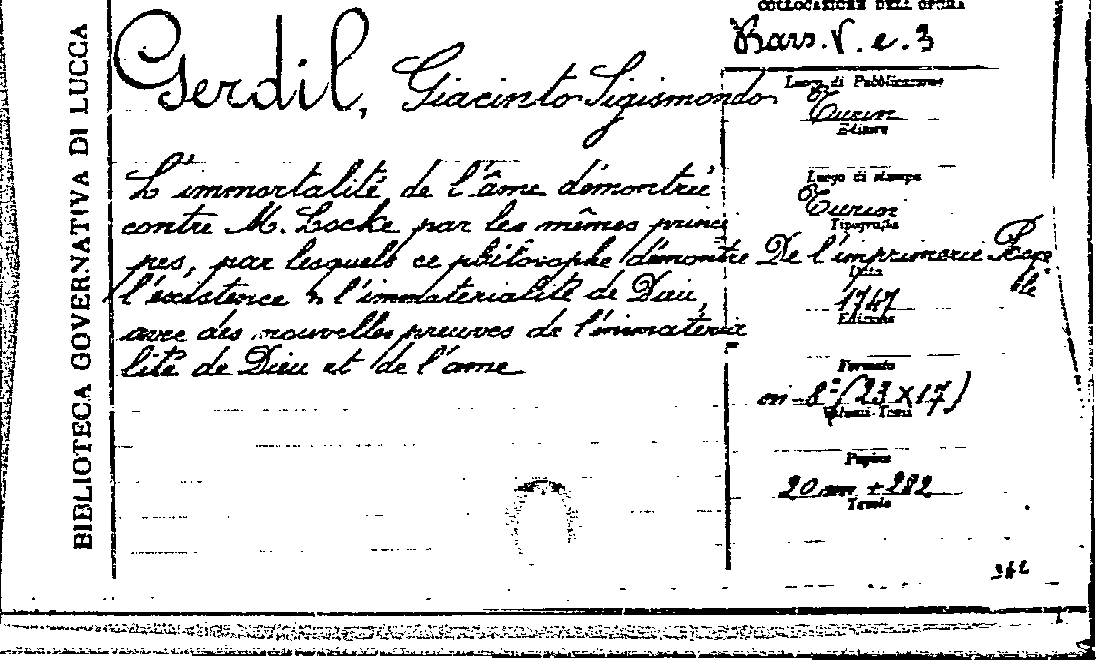 BIBLIOTECA GOVERNATIVA DI LUCCA
COLLOCAZIONE DELL'OPERA
Bars. V. e. 3
Gerdil, Giacinto Sigismondo
L'immortalité de l'âme démontrée
contre M. Locke par les mêmes princi
pes, par lesquels ce philosophe démontre
l'existence & l'immaterialité de Dieu,
avec des nouvelles preuves de l'immatéria
lité de Dieu et de l'ame
Luogo di Pubblicazione
Turin
Editore
Luogo di stampa
Turin
Tipografia
De l'imprimerie
Data
1747
Edizione
Formato
in-8° (23 X 17)
Pagine
20 + 282
Tavole